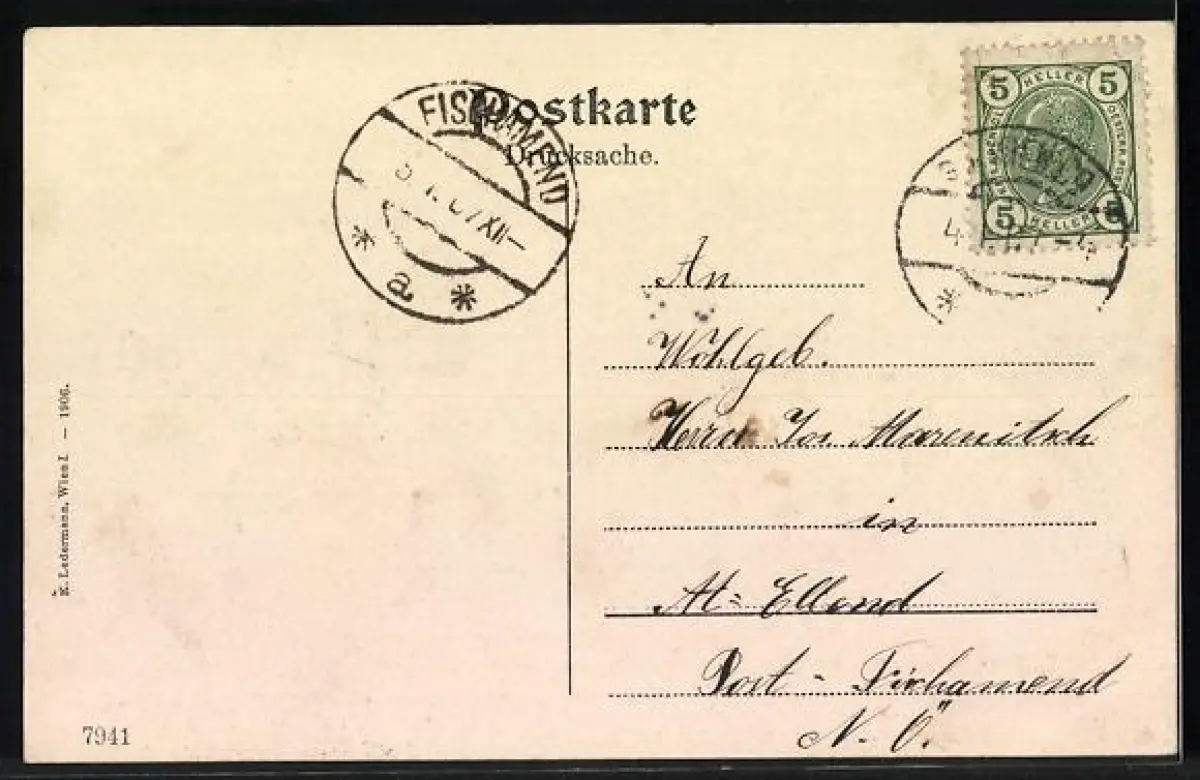 Postkarte
Drucksache.
FISCHAMEND
7 XII–
* a *
5 HELLER 5
5 HELLER 5
4
*
An
Wohlgeb.
Herrn Jos. Marenitsch
in
Alt=Ellend
Post - Fischamend
N. Ö.
K. Ledermann, Wien I. – 1906.
7941